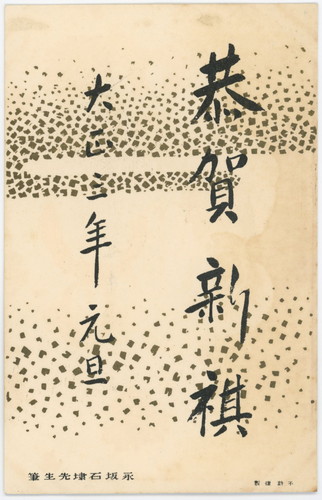 恭賀新禧
大正三年 元旦
永坂石埭先生筆
不許複製